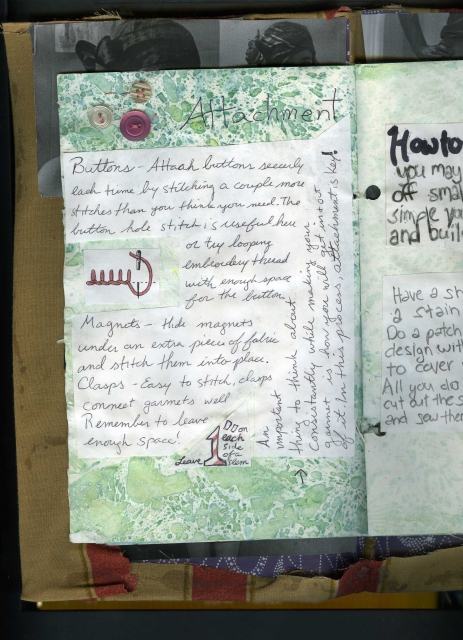 Attachment
Buttons - Attach buttons securly
each time by stitching a couple more
stitches than you think you need. The
button hole stitch is useful here
or try looping
embroidery thread
with enough space
for the button
Magnets - Hide magnets
under an extra piece of fabric
and stitch them into place.
Clasps - Easy to stitch, clasps
connect garmets well
Remember to leave
enough space!
Leave 1"
Do on
each
side
of a
seam
An important
thing to think about
consistantly while making your
garmet is how you will get into + out
of it. In this process, attachment is key!
How to
you may
off small
simple yo
and buil
Have a sh
a stain
Do a patch
design with
to cover
All you do
cut out the s
and sew then